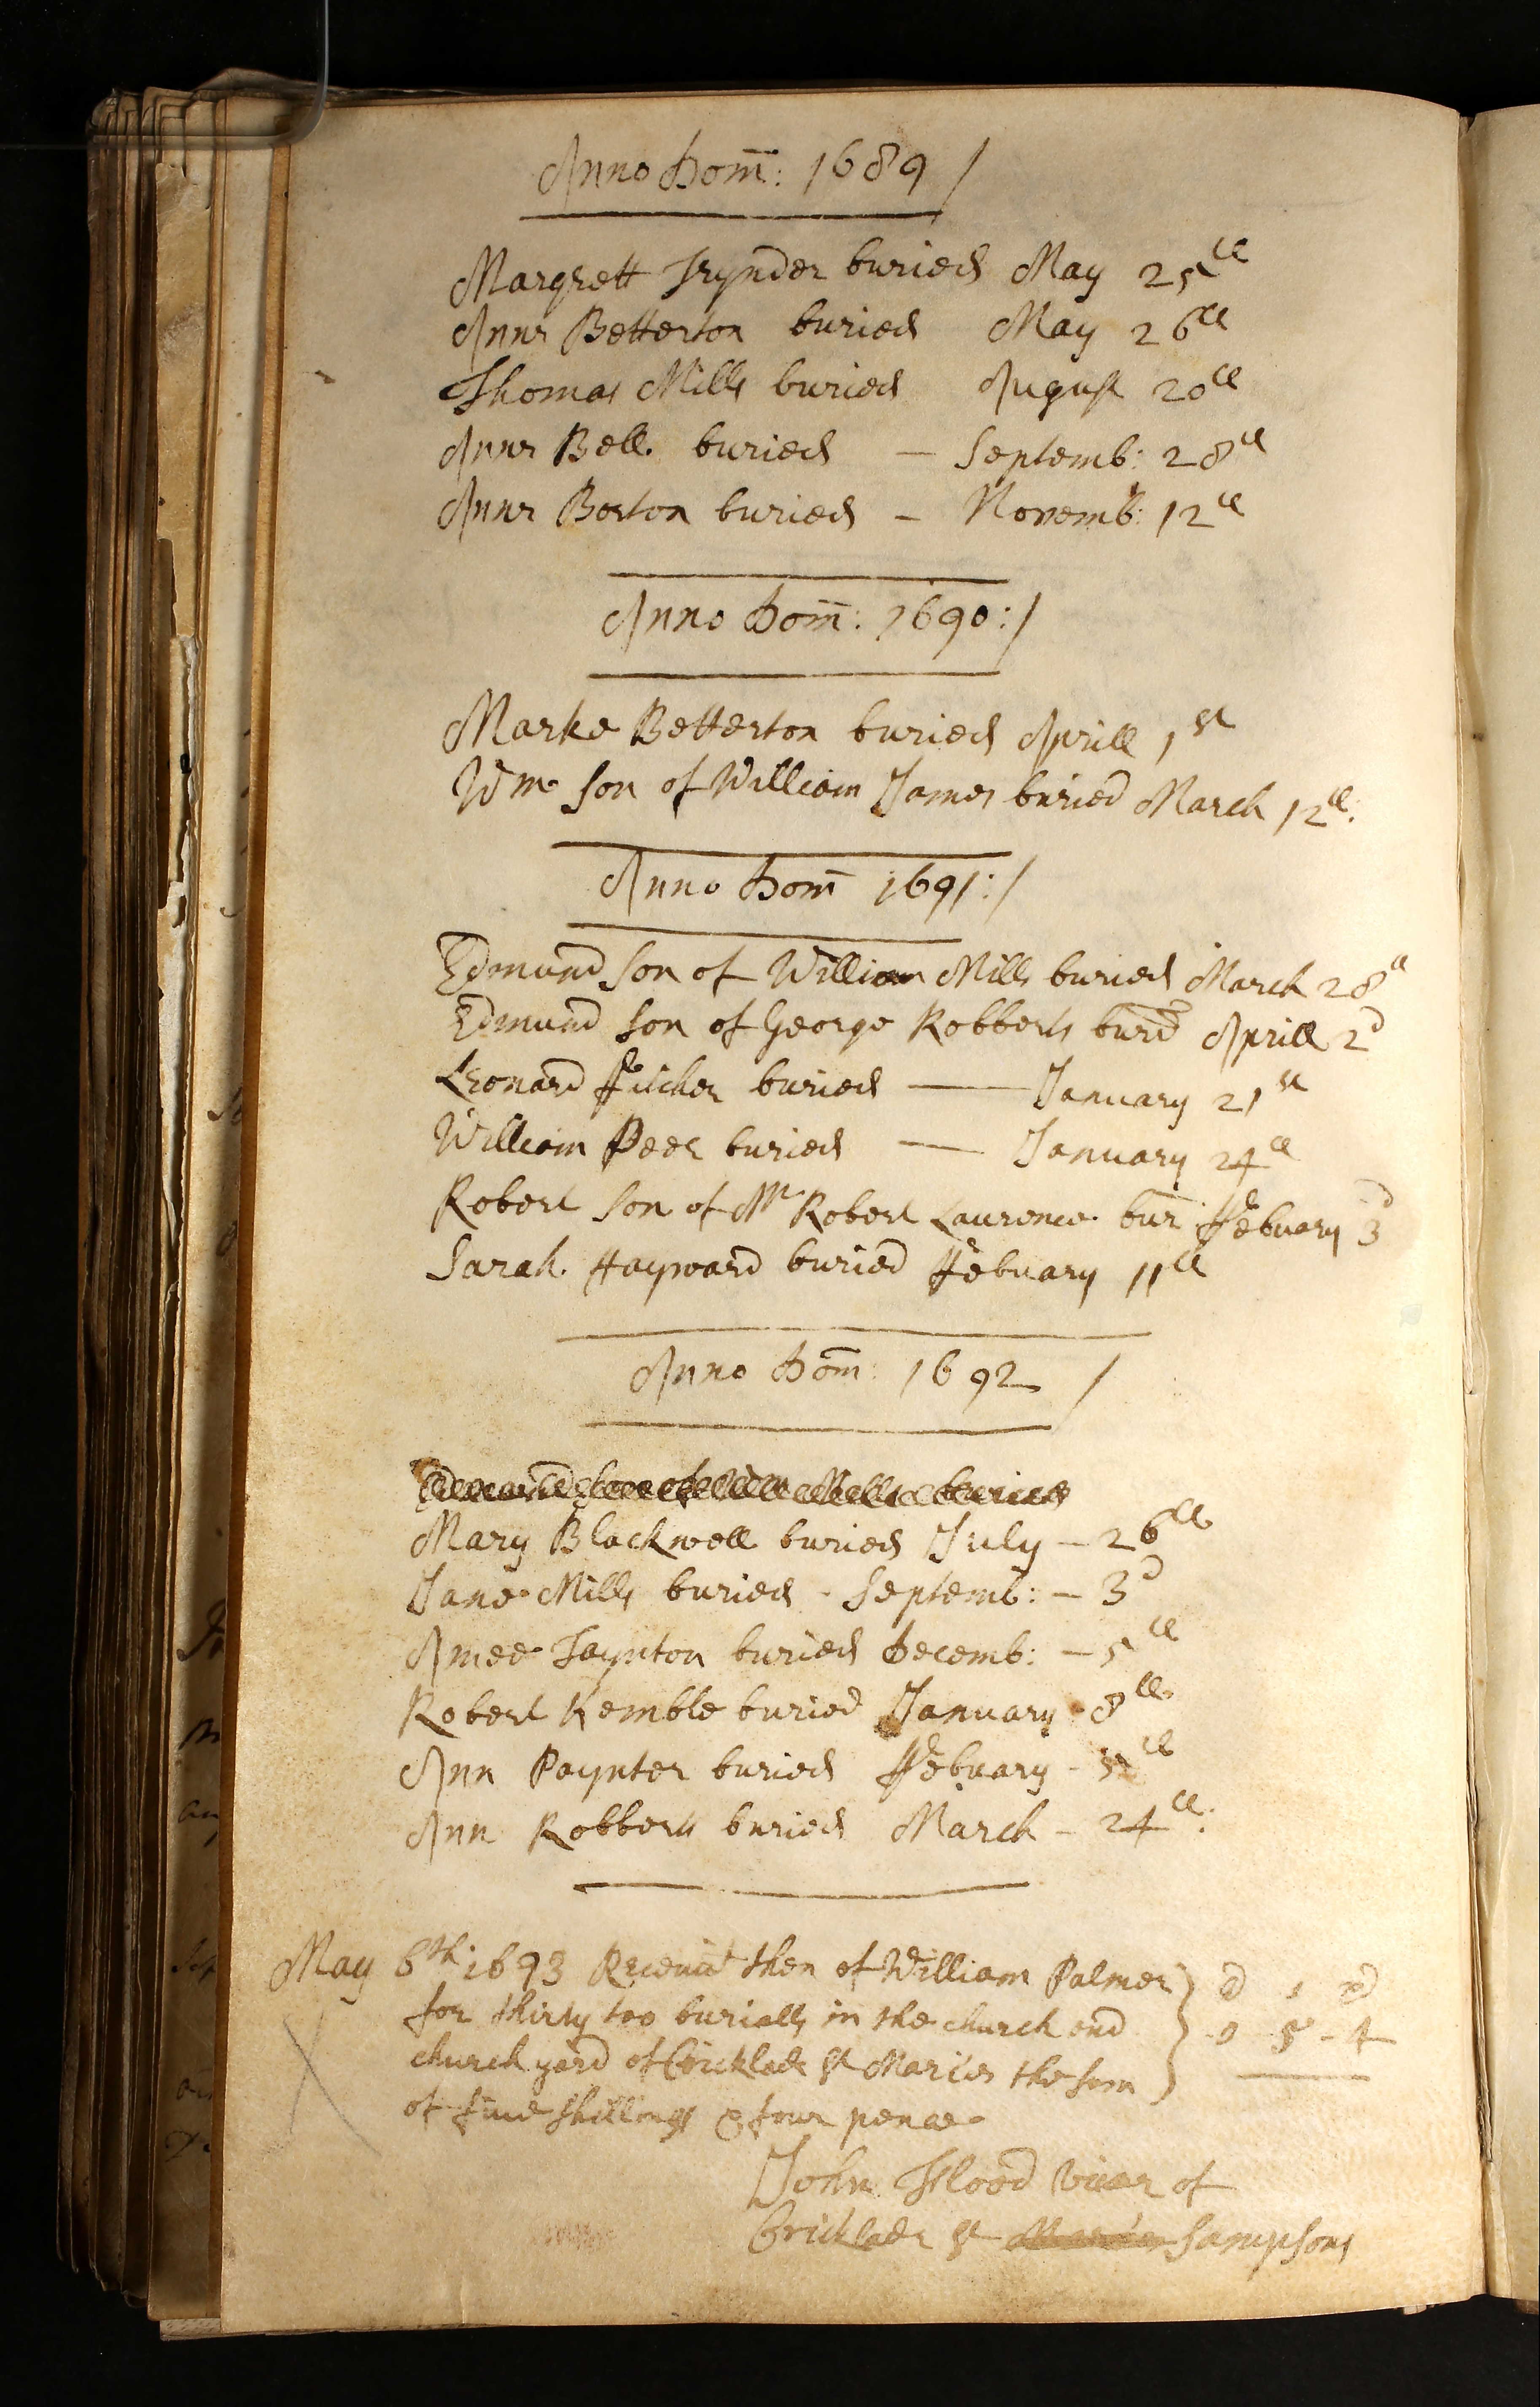 Anno Dom̄: 1689 /
Margrett Trynder buried May 25th
Anne Betterton buried May 26th
Thomas Mills buried August 20th
Anne Bell buried — Septemb: 28th
Anne Borton buried — Novemb: 12th
Anno Dom̄: 1690: /
Marke Betterton buried Aprill 1st
Wm son of William James buried March 12th:
Anno Dom̄ 1691: /
Edmund son of William Mills buried March 28th
Edmund son of George Robberts burd Aprill 2d
Leonard ffilcher buried — January 21st
William Peer buried — January 24th
Robert son of Mr Robert Laurence bur ffebuary 3d
Sarah Hayward buried ffebuary 11th
Anno Dom̄: 1692 /
Edmund son of Mills buried
Mary Blackwell buried July — 26th
Jane Mills buried - Septemb: — 3d
Amee Taynton buried Decemb: — 5th
Robert Kemble buried January 8th
Ann Paynter buried ffebuary -
Ann Robberts buried March — 24th:
May 6th: 1693 Receiud then of William Palmer
for thirty too burialls in the church and
church yard of Cricklade st Maries the som
of fiue shillings & four pence
0 5 - 4
John Flood vicar of
Cricklade st Maries Sampsons